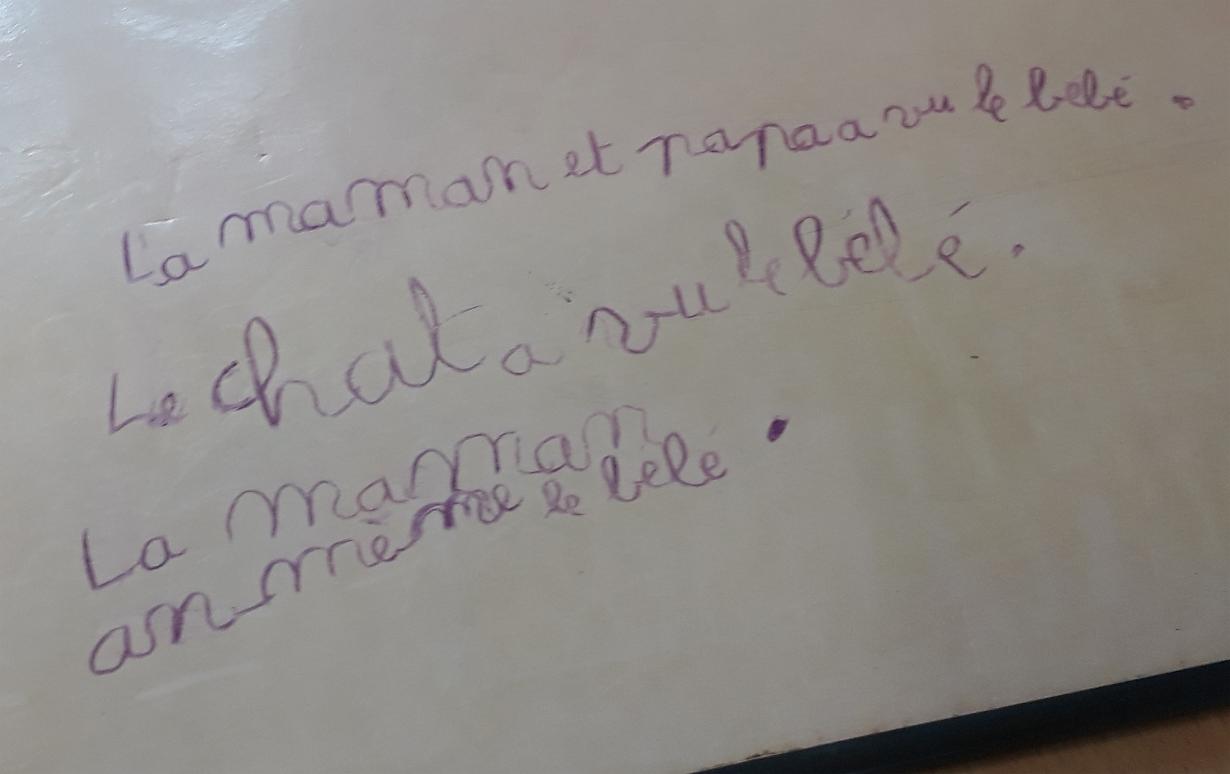 La maman et papa a vu le bébé.
Le chat a vu le bébé.
La maman
an mème le bébé.